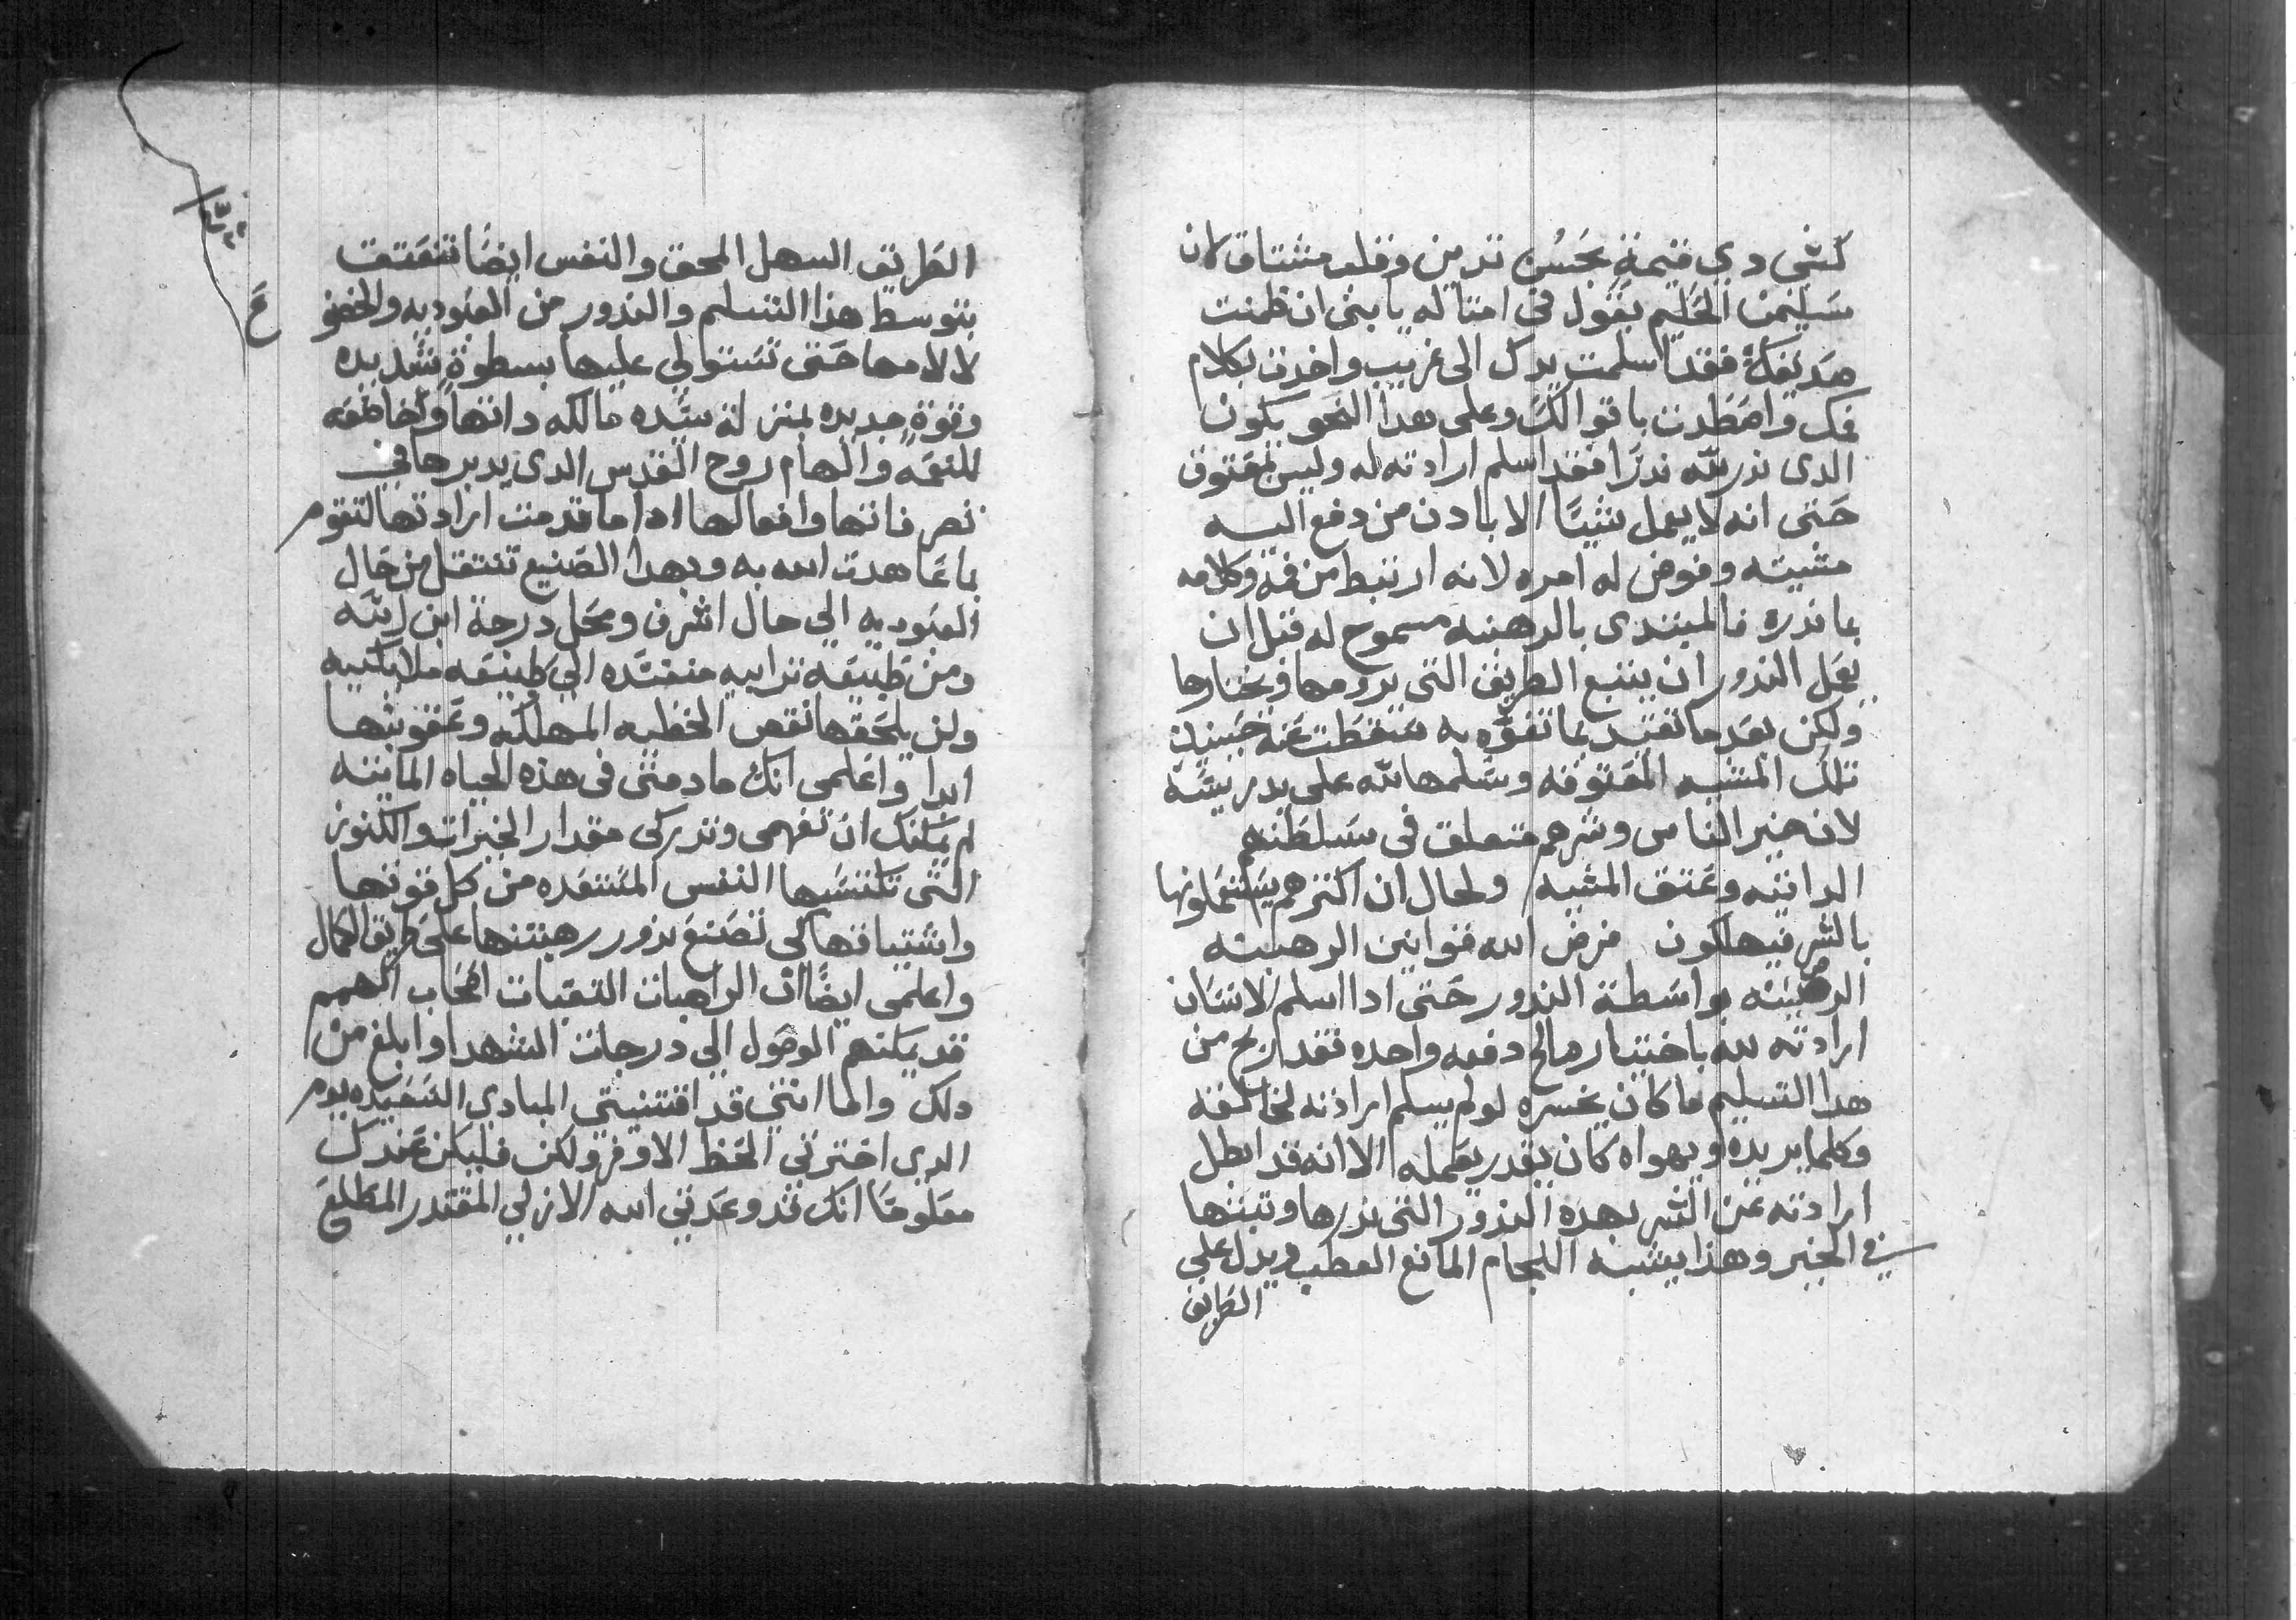 كشي دي قيمةٍ بحَسُن تدمن وقلب مشتاق لان
سَليمن الحَكيم يقول في امثاله يا بني ان ظمنت
صَديقكَ فقد اسلمت يدك الى غريب واخدت بكلام
فمك واصَطدت باقوالكَ وعلى هدا النحو يكون
الدى ندر لله ندرًا فقد اسلم ارادته له وليس بمعَتوق
حَتى انه لا يعمل شيًا الا بادن من دفع اليه
مشيته وفوض له امره لانه ارتبط من فمه وكلامه
بما نذره فالمبتدى بالرهبنه مسموح له قبل ان
يعَمل الندور ان يتبع الطريق التى يرومها ويختارها
ولكن بعَد ما تقيد بما تفوّه به سَقطت عَنه حينيدٍ
تلك المشيه المعَتوقه وسَلمها لله على يد رييسَه
لان خير الناس وشرهم متعلق فى سَلطَتهم
الداتيه وعَتق المشيه ولحال ان اكثرهم يسَتعَملونها
بالشر فيهلكون فرض الله قوانين الرهبنه
الرهبنه بواسَطة الندور حَتى ادا اسلم الانسَان
ارادته لله باختيار صالح دفعه واحده فقد اربح من
هدا التسليم ما كان يخسره لو لم يسلم ارادته لخالقه
وكلما يريده ويهواه كان يقدر يعَمله الا انه قد ابطل
ارادته عَن الشر بهده الندور التى ندرها وثبتها
في الخير وهذا يشبه اللجام المانع العطب ويدل على
الطريق
الطَريق السهل المحق والنفس ايضًا تنعَتق
بتوسط هذا التسليم والندور من العَبوديه والخضو
لالامها حَتى تسَتولي عليها بسطوةٍ شديده
وقوةٍ جديده بمنزلة سيَده مالكه داتهاً وخاضعَه
للنعَمَه والهام روح القدس الدى يدبرها في
تصرفاتها وافعالها ادا ما قدمت ارادتها لتقوم
بما عَاهدت الله به وبهدا الصَنيع تنتقل من حَال
العبَوديه الي حال اشرف ومحَل درجة ابن الله
ومن طبيعَه ترابيه منفسَده الي طبيعَه ملايكيه
ولن يلحَقها نقص الخطيه المهلكه وعَقوبتها
ابدا واعَلمى انك ما دمتى فى هذه الحياه المايته
لم يمَكنك ان تفهمى وتدركى مقدار الخيرات والكنوز
التى تكتسَبها النفس المستعَده من كل قوتها
واشتياقها كي تصَنع ندور رهبنتها على طريق الكمال
واعلمى ايضًا ان الراهبات التقيات اصَحَاب الهمم
قد يمكنهم الوصول الي درجات الشهدا وابلغ من
دلك واما انتي قد اقتنيتي المبادي السَعَيده يوم
الدى اخترتي الحَظ الاوفر ولكن فليكن عَندك
معَلومًا انك قد وعَدتي الله الازلي المقتدر المطلع
عَ